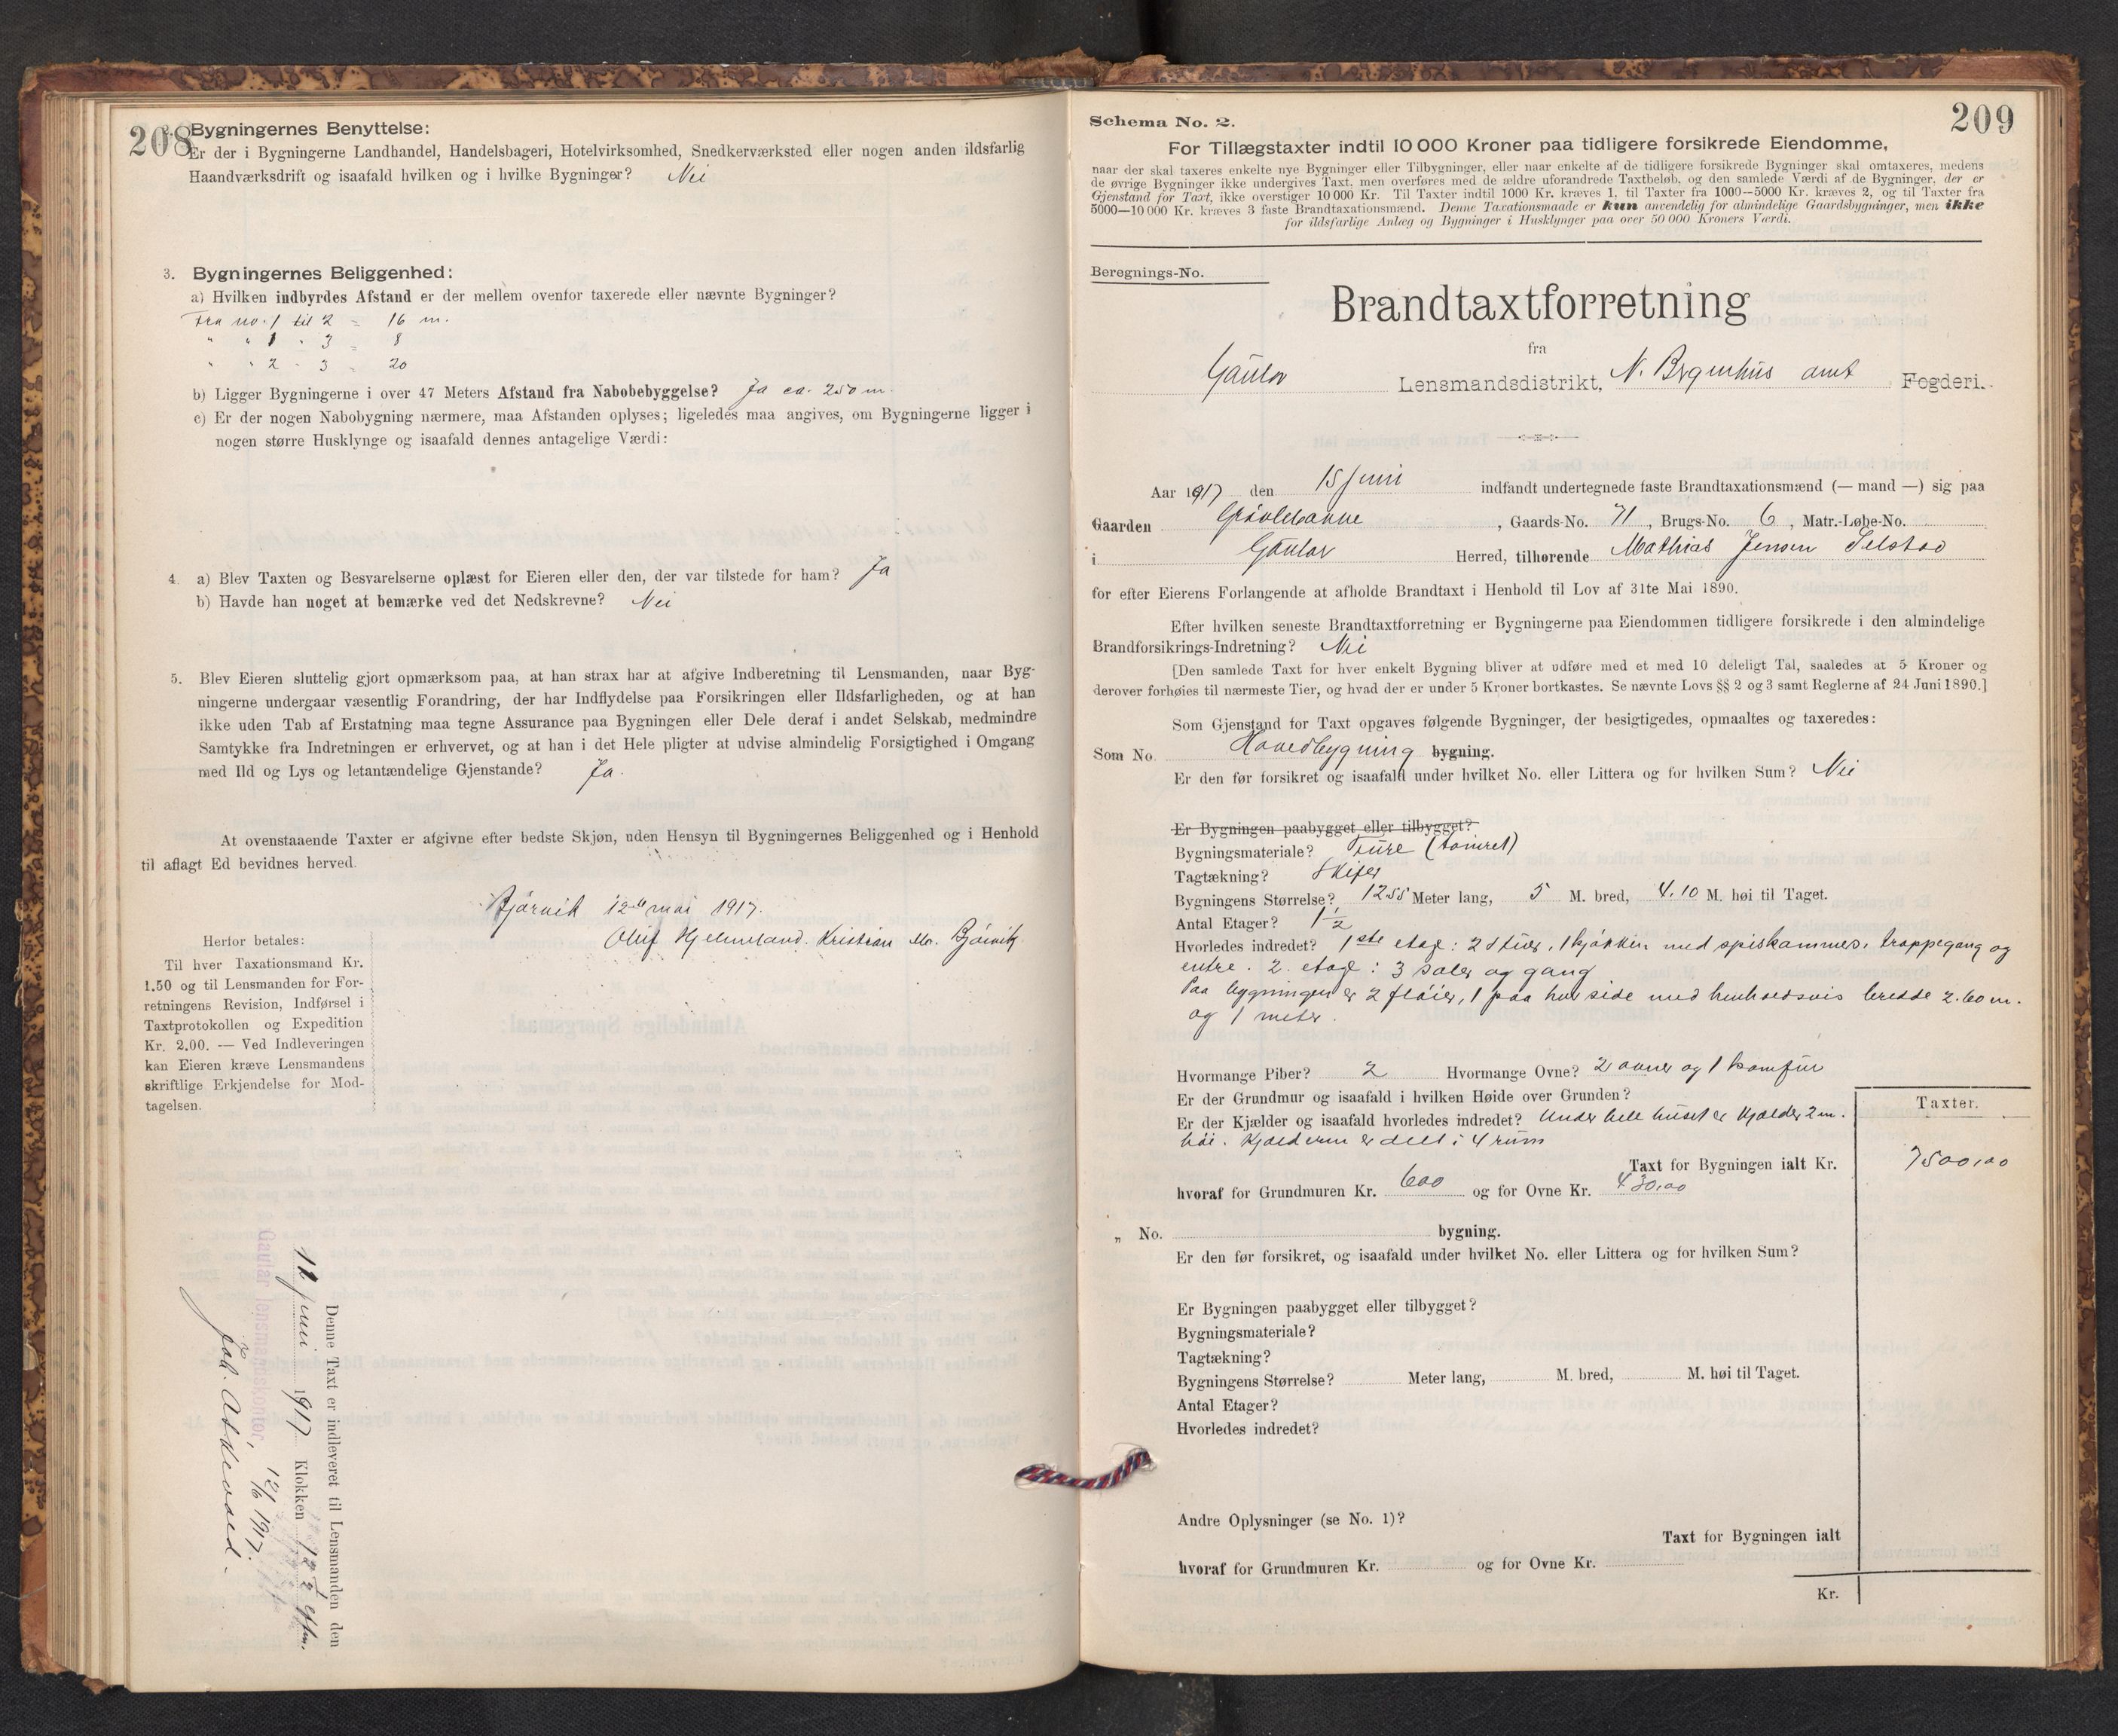 208
Bygningernes Benyttelse:
Er der i Bygningerne Landhandel, Handelsbageri, Hotelvirksomhed, Snedkerværksted eller nogen anden ildsfarlig
Haandværksdrift og isaafald hvilken og i hvilke Bygninger? Nei
3. Bygningernes Beliggenhed:
a) Hvilken indbyrdes Afstand er der mellem ovenfor taxerede eller nævnte Bygninger?
Fra no. 1 til 2 = 16 m.
" " 1 " 3 = 8
" " 2 " 3 = 20
b) Ligger Bygningerne i over 47 Meters Afstand fra Nabobebyggelse? Ja ca. 250 m.
c) Er der nogen Nabobygning nærmere, maa Afstanden oplyses; ligeledes maa angives, om Bygningerne ligger i
nogen større Husklynge og isaafald dennes antagelige Værdi:
4. a) Blev Taxten og Besvarelserne oplæst for Eieren eller den, der var tilstede for ham? Ja
b) Havde han noget at bemærke ved det Nedskrevne? Nei
5. Blev Eieren sluttelig gjort opmærksom paa, at han strax har at afgive Indberetning til Lensmanden, naar Byg-
ningerne undergaar væsentlig Forandring, der har Indflydelse paa Forsikringen eller Ildsfarligheden, og at han
ikke uden Tab af Erstatning maa tegne Assurance paa Bygningen eller Dele deraf i andet Selskab, medmindre
Samtykke fra Indretningen er erhvervet, og at han i det Hele pligter at udvise almindelig Forsigtighed i Omgang
med Ild og Lys og letantændelige Gjenstande? Ja.
At ovenstaaende Taxter er afgivne efter bedste Skjøn, uden Hensyn til Bygningernes Beliggenhed og i Henhold
til aflagt Ed bevidnes herved.
Bjørvik 12te mai 1917.
Oluf Hjelmeland. Kristian M. Bjørvik
Herfor betales:
Til hver Taxationsmand Kr.
1.50 og til Lensmanden for For-
retningens Revision, Indførsel i
Taxtprotokollen og Expedition
Kr. 2.00. — Ved Indleveringen
kan Eieren kræve Lensmandens
skriftlige Erkjendelse for Mod-
tagelsen.
Denne Taxt er indleveret til Lensmanden den
12 juni 1917 Klokken 12 1/2 efm.
Gaular lensmannskontor, 12/6 1917.
209
Schema No. 2.
For Tillægstaxter indtil 10 000 Kroner paa tidligere forsikrede Eiendomme,
naar der skal taxeres enkelte nye Bygninger eller Tilbygninger, eller naar enkelte af de tidligere forsikrede Bygninger skal omtaxeres, medens
de øvrige Bygninger ikke undergives Taxt, men overføres med de ældre uforandrede Taxtbeløb, og den samlede Værdi af de Bygninger, der er
Gjenstand for Taxt, ikke overstiger 10 000 Kr. Til Taxter indtil 1000 Kr. kræves 1, til Taxter fra 1000—5000 Kr. kræves 2, og til Taxter fra
5000—10 000 Kr. kræves 3 faste Brandtaxationsmænd. Denne Taxationsmaade er kun anvendelig for almindelige Gaardsbygninger, men ikke
for ildsfarlige Anlæg og Bygninger i Husklynger paa over 50 000 Kroners Værdi.
Beregnings-No.
Brandtaxtforretning
fra
Gaular Lensmandsdistrikt, N. Bergenhus amt Fogderi.
Aar 1917 den 15 juni indfandt undertegnede faste Brandtaxationsmænd (— mand —) sig paa
Gaarden , Gaards-No. 71 , Brugs-No. 6 , Matr.-Løbe-No.
i Gaular Herred, tilhørende Mathias Jensen Selstad
for efter Eierens Forlangende at afholde Brandtaxt i Henhold til Lov af 31te Mai 1890.
Efter hvilken seneste Brandtaxtforretning er Bygningerne paa Eiendommen tidligere forsikrede i den almindelige
Brandforsikrings-Indretning? Nei
[Den samlede Taxt for hver enkelt Bygning bliver at udføre med et med 10 deleligt Tal, saaledes at 5 Kroner og
derover forhøies til nærmeste Tier, og hvad der er under 5 Kroner bortkastes. Se nævnte Lovs §§ 2 og 3 samt Reglerne af 24 Juni 1890.]
Som Gjenstand for Taxt opgaves følgende Bygninger, der besigtigedes, opmaaltes og taxeredes:
Som No. Hovedbygning bygning.
Er den før forsikret og isaafald under hvilket No. eller Littera og for hvilken Sum? Nei
Er Bygningen paabygget eller tilbygget?
Bygningsmateriale? Fure (tømret)
Tagtækning? Skifer
Bygningens Størrelse? 1255 Meter lang, 5 M. bred, 4.10 M. høi til Taget.
Antal Etager? 1 1/2
Hvorledes indredet? 1ste etage: 2 stuer, 1 kjøkken med spiskammer, trappegang og
entre. 2. etage: 3 saler og gang
Paa bygningen er 2 fløier, 1 paa hver side med henholdsvis bredde 2.60 m.
og 1 meter.
Hvormange Piber? 2 Hvormange Ovne? 2 ovner og 1 komfur
Er der Grundmur og isaafald i hvilken Høide over Grunden?
Er der Kjælder og isaafald hvorledes indredet? Under hele huset er kjælder 2 m.
høi. Kjælderen er delt i 4 rum
Taxter.
Taxt for Bygningen ialt Kr. 7500,00
hvoraf for Grundmuren Kr. 600 og for Ovne Kr. 430,00
" No. bygning.
Er den før forsikret, og isaafald under hvilket No. eller Littera og for hvilken Sum?
Er Bygningen paabygget eller tilbygget?
Bygningsmateriale?
Tagtækning?
Bygningens Størrelse? Meter lang, M. bred, M. høi til Taget.
Antal Etager?
Hvorledes indredet?
Andre Oplysninger (se No. 1)?
Taxt for Bygningen ialt
hvoraf for Grundmuren Kr. og for Ovne Kr.
Kr.